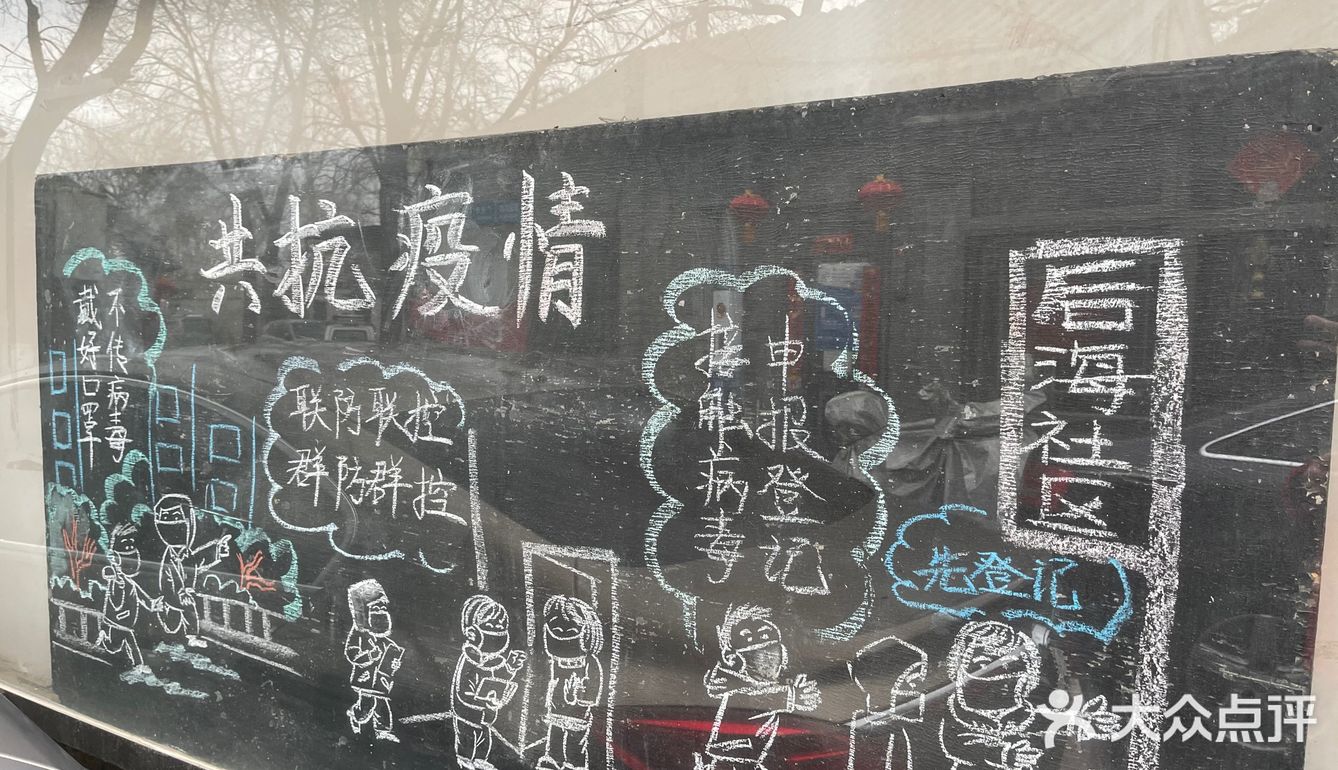 共抗疫情
戴好口罩
不传病毒
联防联控
群防群控
接触病
申报登记
先登记
后海社区
大众点评